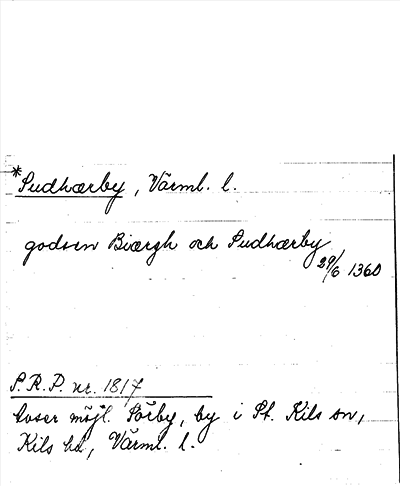 *Sudhærby, Värml. l.
godsen Biærgh och Sudhærby
29/6 1360
S.R.P. nr. 1817
Avser möjl. Sörby, by i St. Kils sn,
Kils hd, Värml. l.